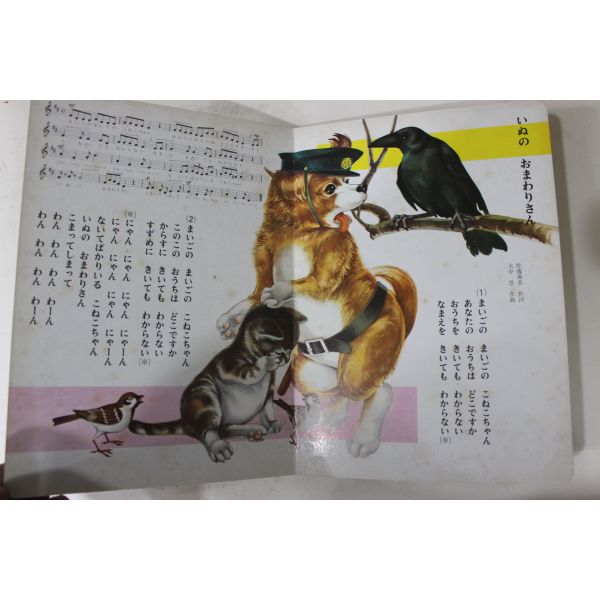 いぬの おまわりさん
佐藤義美 作詞
大中 恩 作曲
(1)
まいごの まいごの こねこちゃん
あなたの おうちは どこですか
おうちを きいても わからない
なまえを きいても わからない(※)
(2)
まいごの まいごの こねこちゃん
このこの おうちは どこですか
からすに きいても わからない
すずめに きいても わからない(※)
(※)
にゃん にゃん にゃん にゃーん
にゃん にゃん にゃん にゃーん
ないてばかりいる こねこちゃん
いぬの おまわりさん
こまってしまって
わん わん わん わーん
わん わん わん わーん